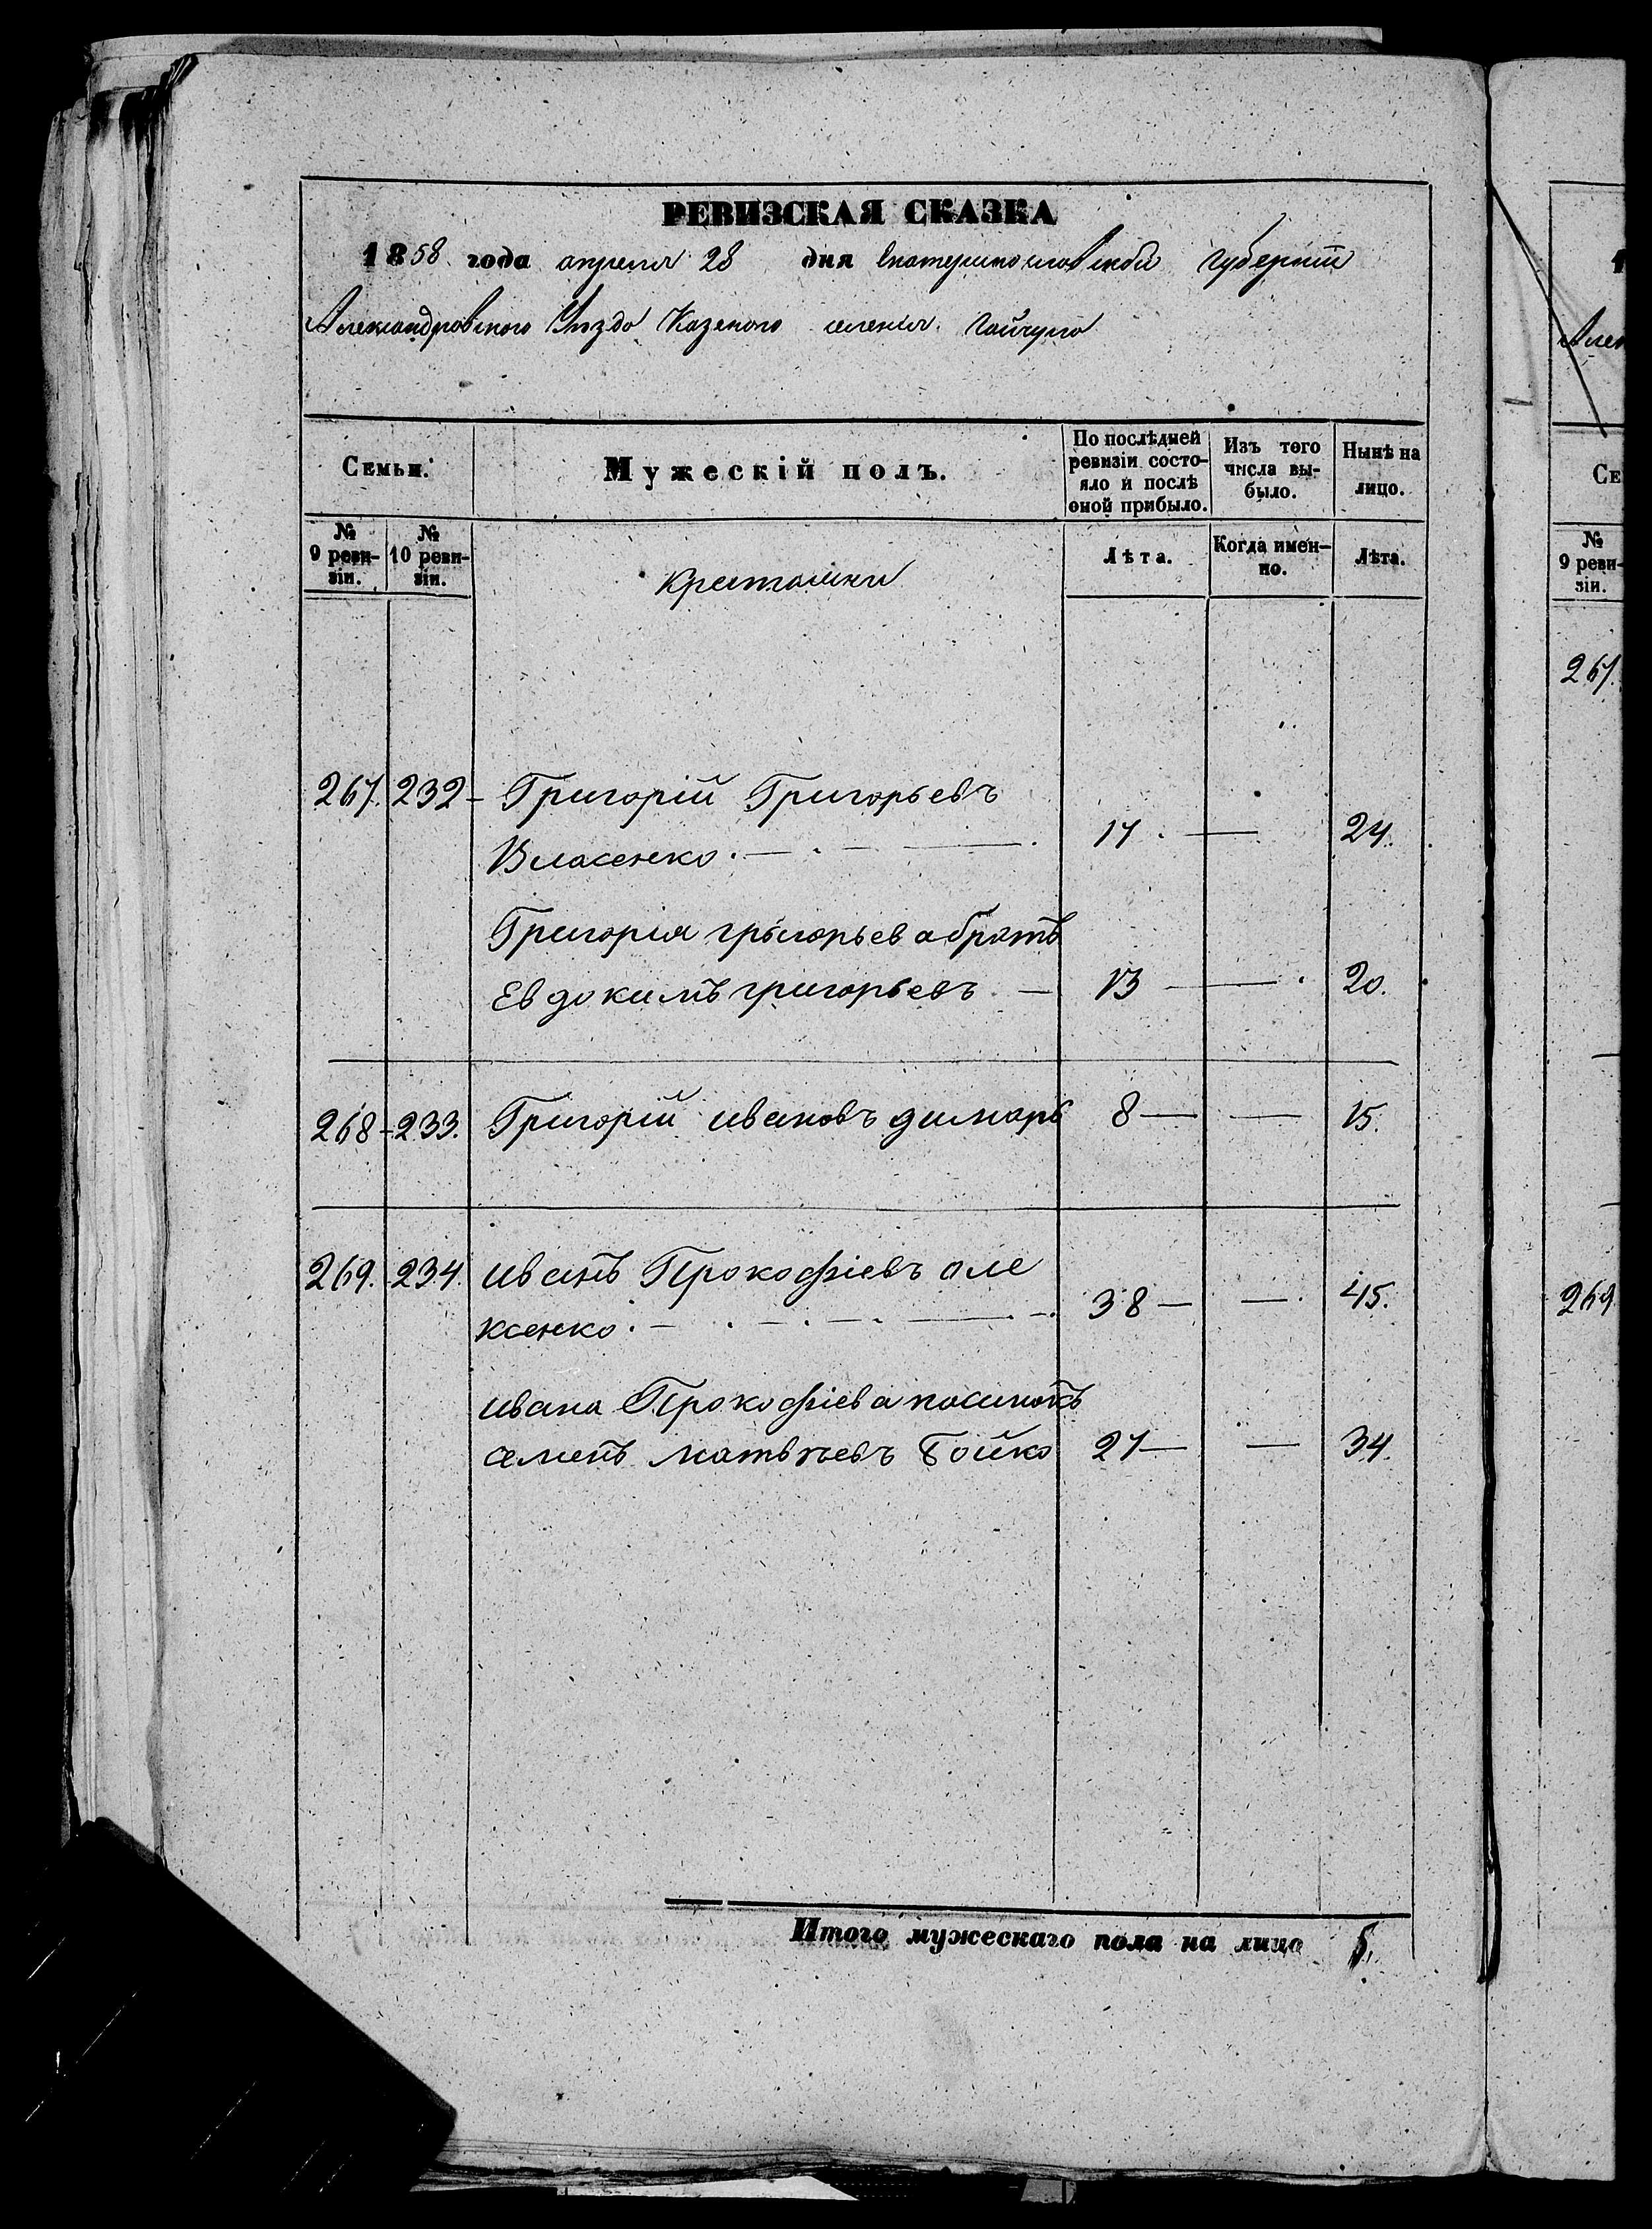 РЕВИЗСКАЯ СКАЗКА
1858 года апреля 28 дня Екатеринославской Губернiи
Александровского Уѣзда Казеного селенiя Гайчула
Семьи.
Мужескiй полъ.
По послѣдней ревизiи состо-
яло и послѣ
оной прибыло.
Изъ того
числа вы-
было.
Нынѣ на
лицо.
№
9 реви-
зiи.
№
10 реви-
зiи.
Крестьяни
Лѣта.
Когда имен-
но.
Лѣта.
267. 232 - Григорiй Григорьевъ
Власенко. 17. — 24.
Григорiя григорьева братъ
Евдокимъ григорьевъ — 13 — 20.
268 - 233. Григорiй ивановъ димаръ 8 — — 15.
269. 234. иванъ Прокофiевъ але
ксенко. 38 — — 45.
ивана Прокофiева пасинокъ
семенъ матвѣевъ Бойко 27 — — 34.
Итого мужескаго пола на лицо 5.
Але
Се
№
9 реви-
зiи.
267.
269